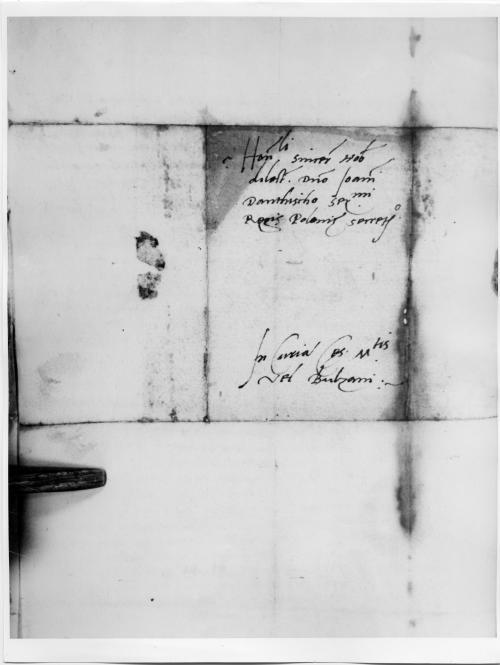 Honli sincer nob
dilect. Dno Joanni
Dantischo Sermi
Regis Polonie secreto
In Curia Ces. Mtis
Vel Bulzani